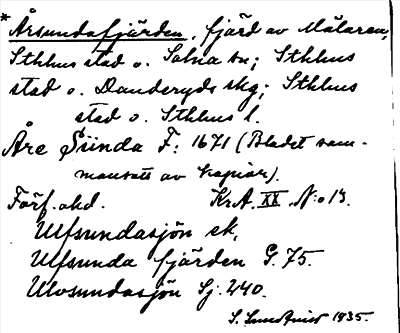 * Årsundafjärden, fjärd av Mälaren,
Sthlms stad o. Solna sn; Sthlms
stad o. Danderyds skg; Sthlms
stad o. Sthlms l.
Åre Siinda F: 1671 (Bladet sam-
mansatt av kopior).
Förf. okd. Kr.A. XX. N:o 13.
Ulfsundasjön ek.
Ulfsunda fjärden G. 75.
Ulvsundasjön Sj. 240.
S. Lundkvist 1935.